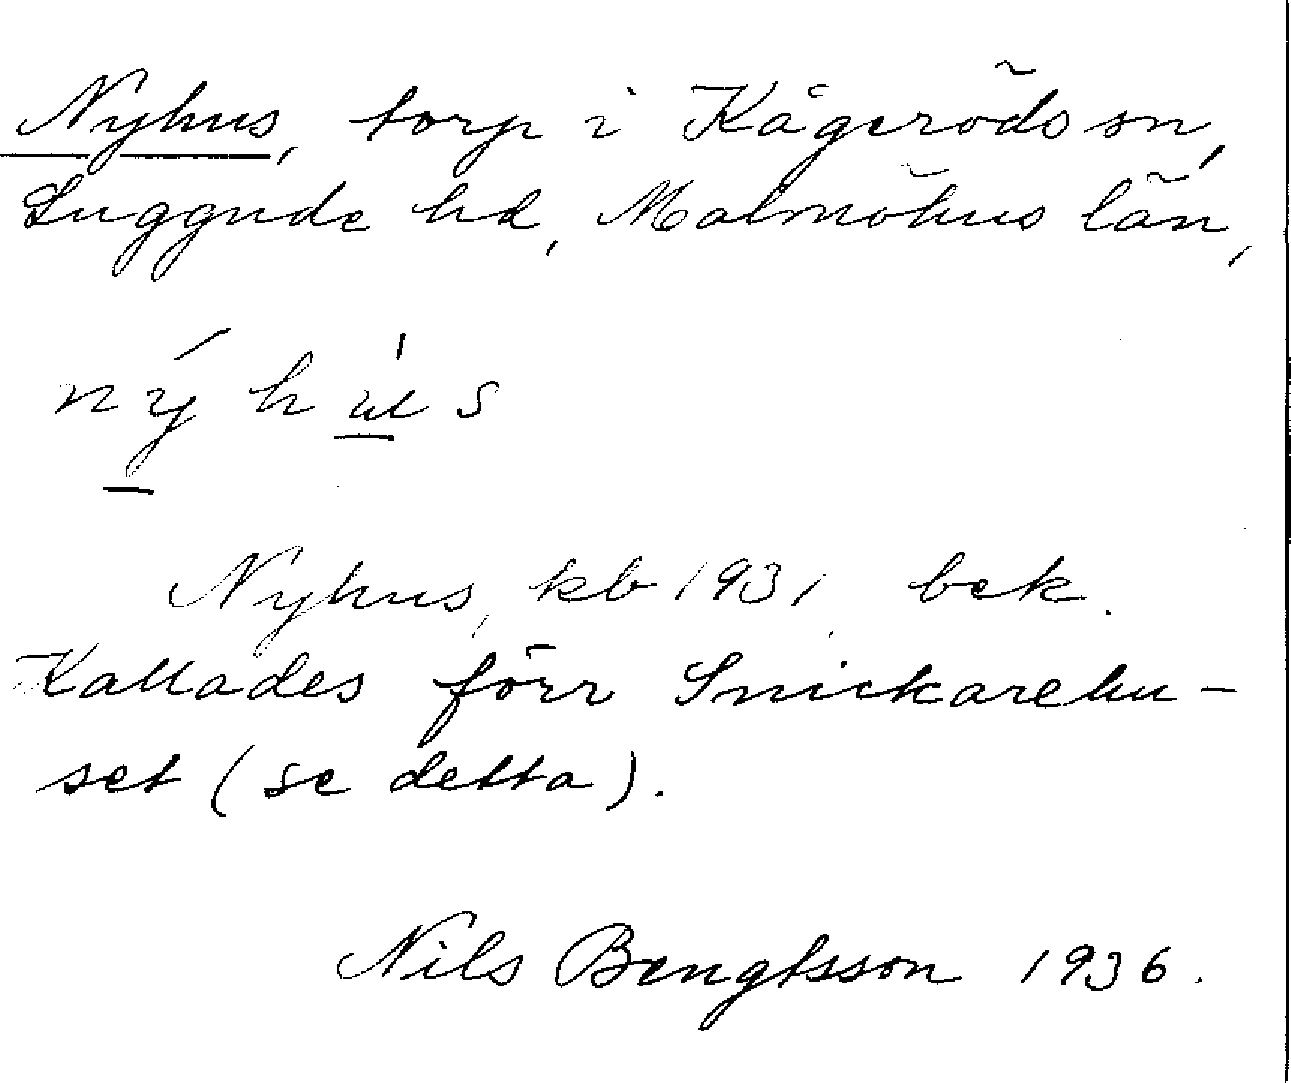 Nyhus, torp i Kågeröds sn,
Luggude hd, Malmöhus län,
ný hús
Nyhus, kb 1931, bek.
Kallades förr Snickarehu-
set (se detta).
Nils Bengtsson 1936.